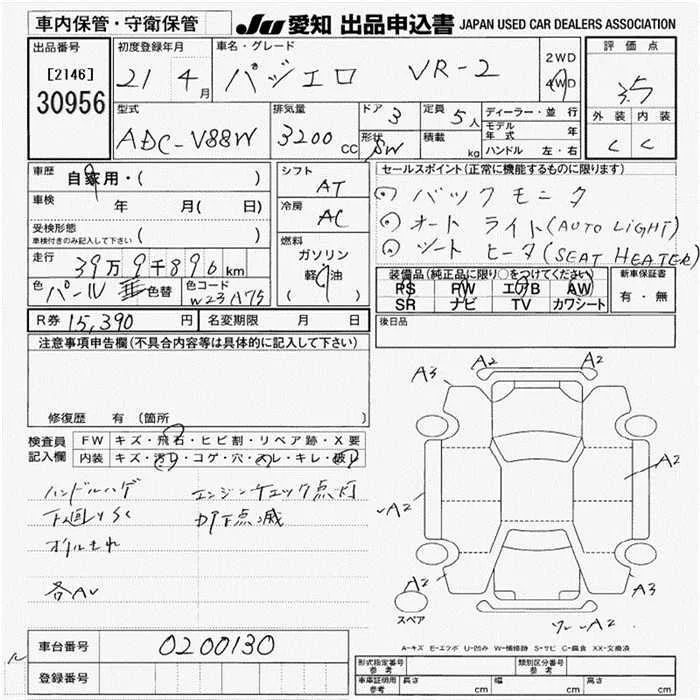 車内保管・守衛保管
JU 愛知 出品申込書 JAPAN USED CAR DEALERS ASSOCIATION
出品番号
[2146]
30956
初度登録年月
21 4月
車名・グレード
パジェロ VR-2
2WD
4WD
評価点
3.5
外装 内装
C C
型式
ADC-V88W
排気量
3200 CC
ドア 3
形状 SW
定員 5人
積載 kg
ディーラー・並行
モデル年式 年
ハンドル 左・右
車歴 自家用・( )
車検 年 月( 日)
受検形態
車検付きのみ記入して下さい ( )
走行 39万9千896km
色 パール 色替
色コード W23A75
シフト AT
冷房 AC
燃料
ガソリン
軽油
( )
セールスポイント(正常に機能するものに限ります)
バックモニタ
オート ライト(AUTO LIGHT)
シート ヒータ(SEAT HEATER)
装備品(純正品に限り○をつけてください)
PS PW エアB AW
SR ナビ TV カワシート
新車保証書
有・無
R券 15,390円 名変期限 月 日
後日品
注意事項申告欄(不具合内容等は具体的に記入して下さい)
修復歴 有(箇所 )
検査員記入欄
FW キズ・飛石・ヒビ割・リペア跡・X要
内装 キズ・汚レ・コゲ・穴・スレ・キレ・破レ
ハンドルハゲ エンジンチェック点灯
下廻りSC DPF点滅
オイルモレ
各AU
A3
A2
A2
A2
A2
A2
A3
A2
スペア
A-キズ E-エクボ U-凹み W-補修跡 S-サビ C-腐食 XX-交換済
車台番号 0200130
登録番号
形式指定番号 参考
類別区分番号 参考
車庫証明用 参考 長さ cm 幅 cm 高さ cm